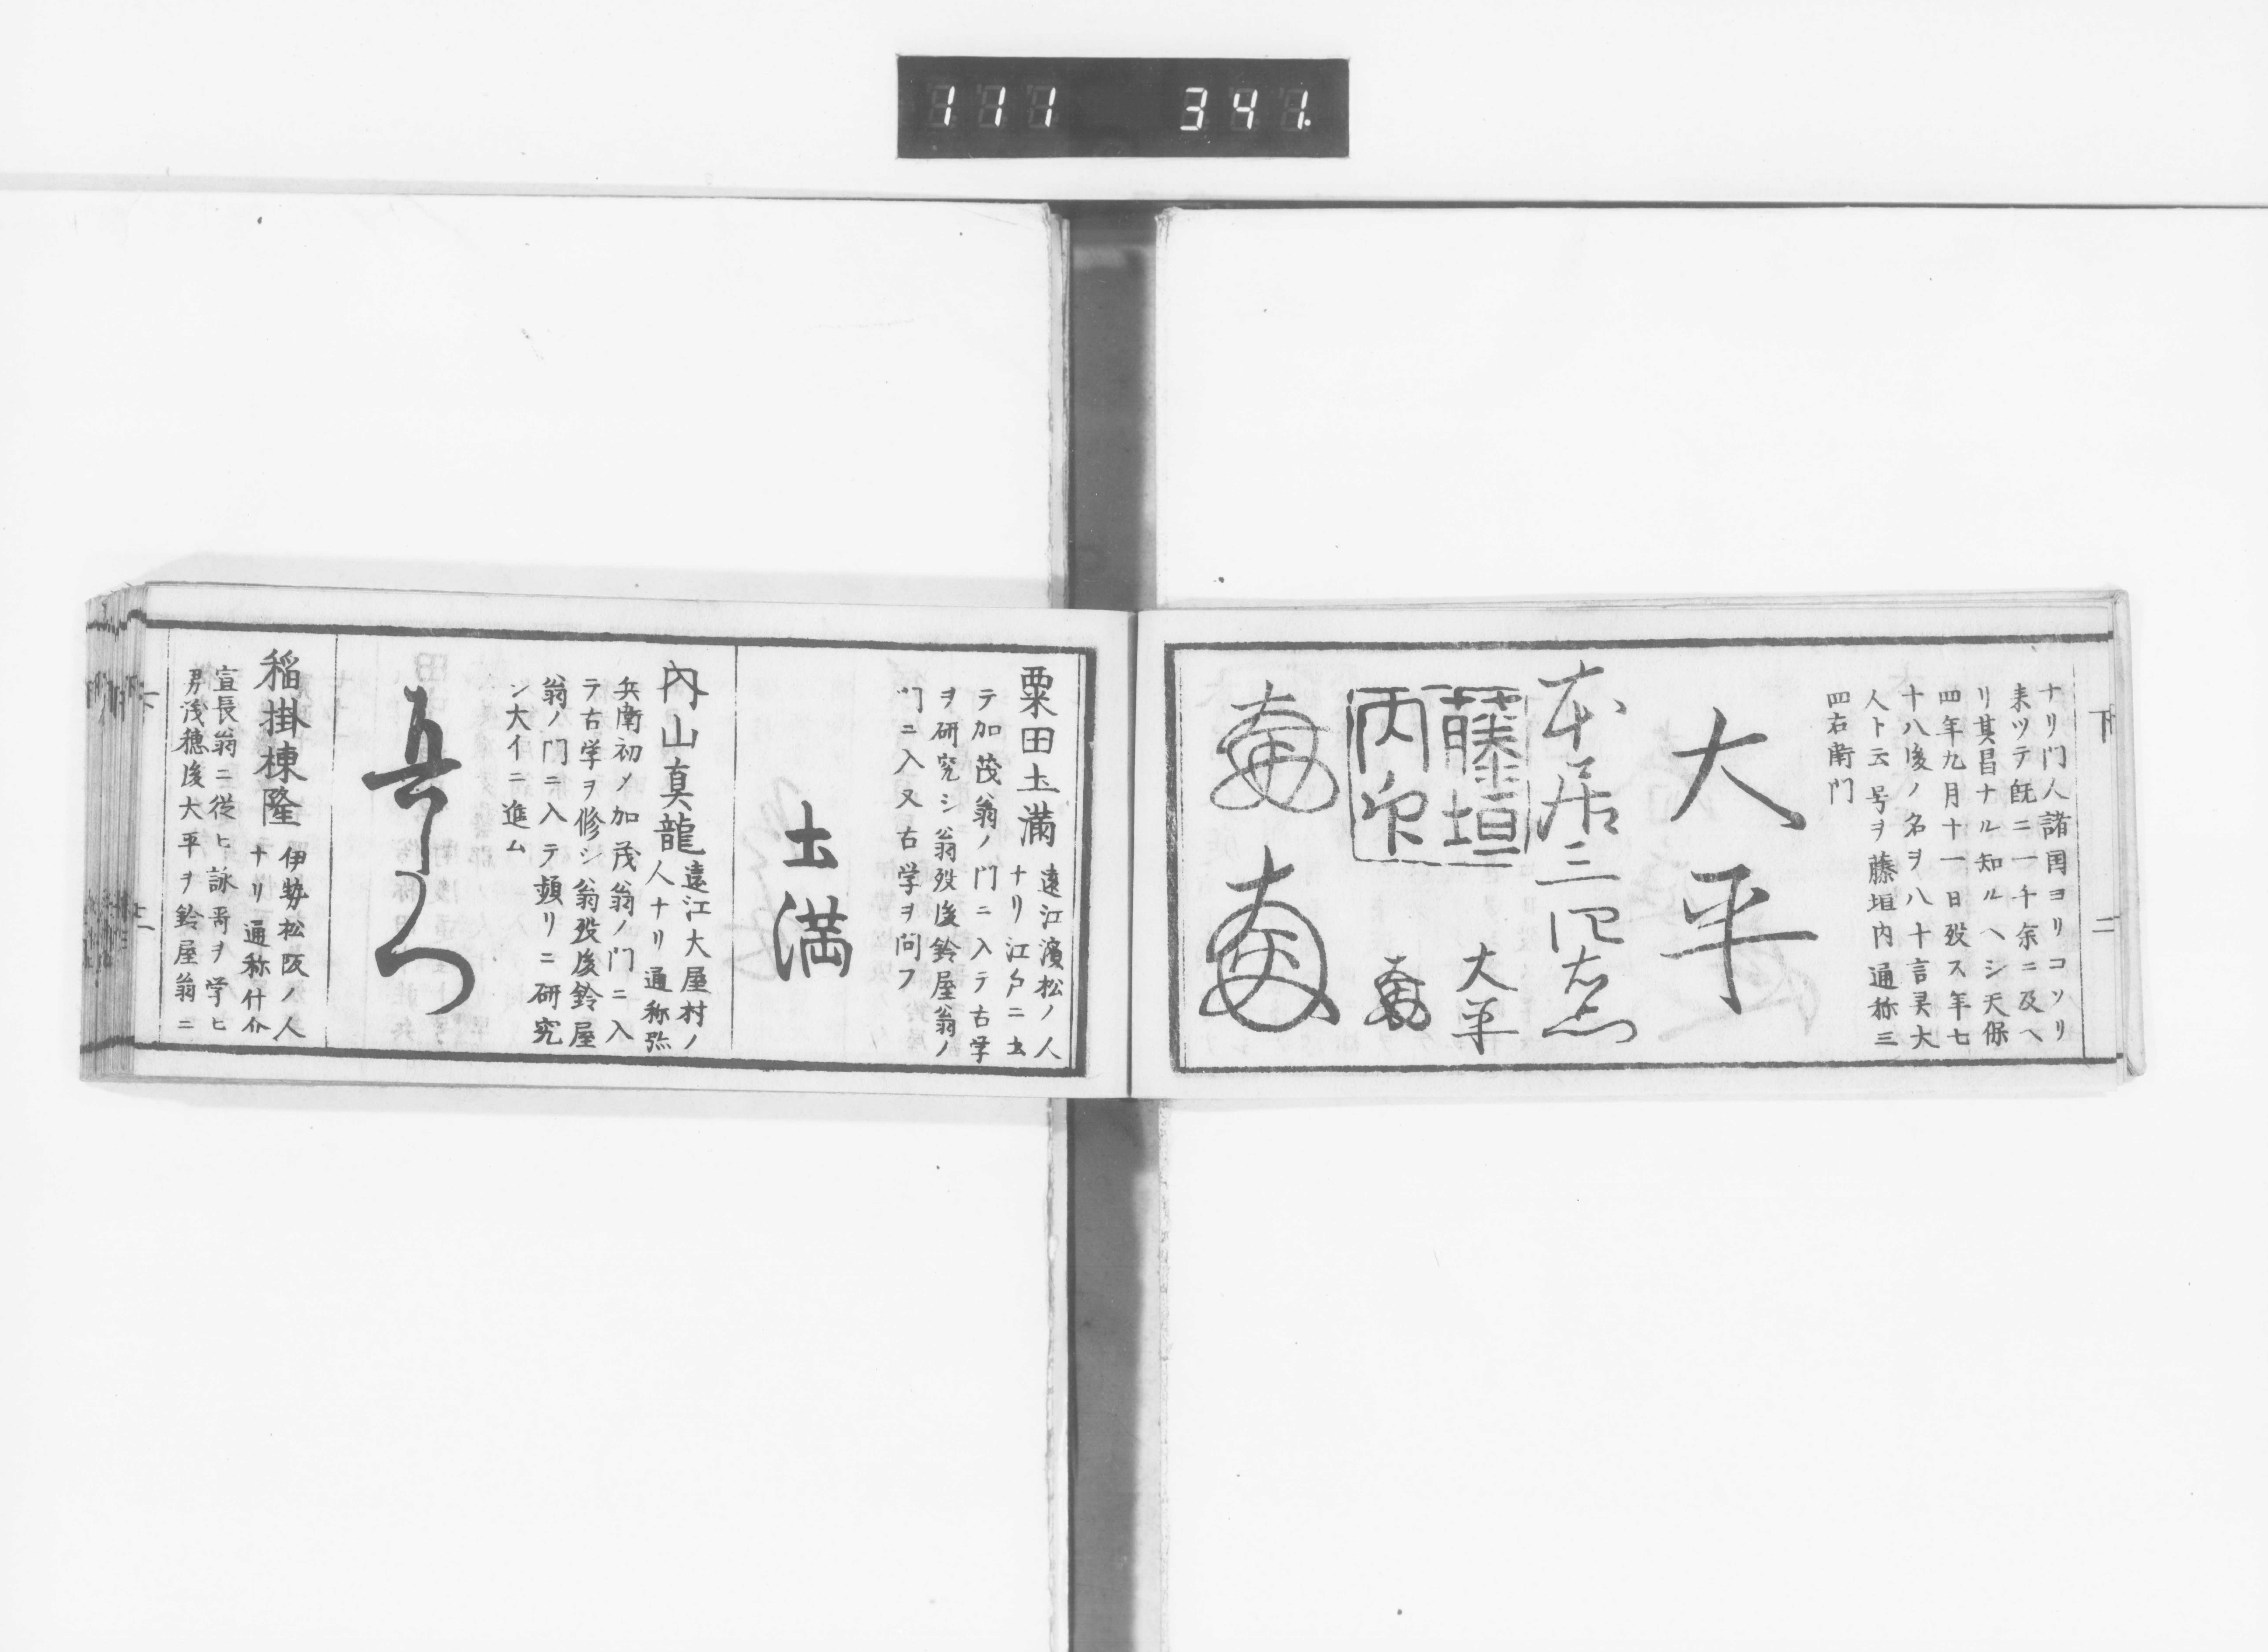 111 341.
下
二
ナリ門人諸国ヨリコソリ
来ツテ既ニ一千余ニ及ヘ
リ其昌ナル知ルヘシ天保
四年九月十一日歿ス年七
十八後ノ名ヲ八十言灵大
人ト云号ヲ藤垣内通称三
四右衛門
大平
本居三四右衛門
藤垣
内印
大平
粟田土満 遠江濱松ノ人
ナリ江戸ニ出
テ加茂翁ノ門ニ入テ古学
ヲ研究シ翁歿後鈴屋翁ノ
門ニ入又古学ヲ問フ
土満
内山真龍 遠江大屋村ノ
人ナリ通称弥
兵衛初メ加茂翁ノ門ニ入
テ古学ヲ修シ翁歿後鈴屋
翁ノ門ニ入テ頻リニ研究
シ大イニ進ム
稲掛棟隆 伊勢松阪ノ人
ナリ通称什介
宣長翁ニ従ヒ詠哥ヲ学ヒ
男茂穂後大平ヲ鈴屋翁ニ